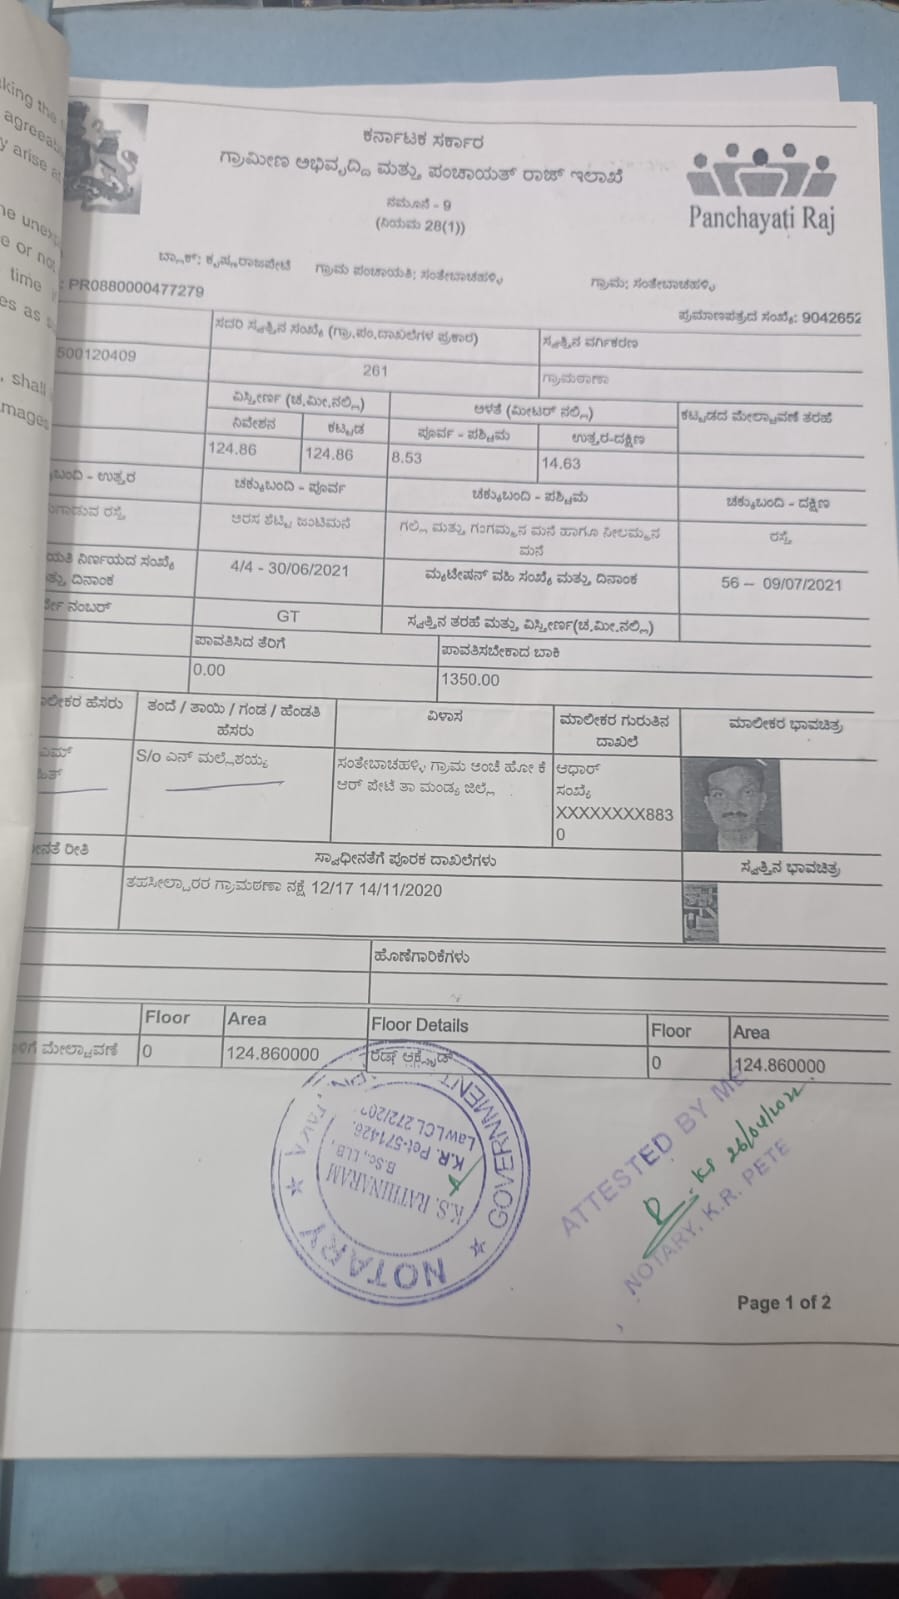 king the
agreeab
y arise a
e or not
time
es as
, shall
mages
ಕರ್ನಾಟಕ ಸರ್ಕಾರ
ಗ್ರಾಮೀಣ ಅಭಿವೃದ್ದಿ ಮತ್ತು ಪಂಚಾಯತ್ ರಾಜ್ ಇಲಾಖೆ
Panchayati Raj
ನಮೂನೆ - 9
(ನಿಯಮ 28(1))
ಬ್ಲಾಕ್: ಕೃಷ್ಣರಾಜಪೇಟೆ ಗ್ರಾಮ ಪಂಚಾಯತಿ: ಸಂತೇಬಾಚಹಳ್ಳಿ ಗ್ರಾಮ: ಸಂತೇಬಾಚಹಳ್ಳಿ
: PR0880000477279
ಪ್ರಮಾಣಪತ್ರದ ಸಂಖ್ಯೆ: 9042652
ಸದರಿ ಸ್ವತ್ತಿನ ಸಂಖ್ಯೆ (ಗ್ರಾ.ಪಂ.ದಾಖಲೆಗಳ ಪ್ರಕಾರ) ಸ್ವತ್ತಿನ ವರ್ಗೀಕರಣ
500120409 261 ಗ್ರಾಮಠಾಣಾ
ವಿಸ್ತೀರ್ಣ (ಚ.ಮೀ.ನಲ್ಲಿ) ಅಳತೆ (ಮೀಟರ್ ನಲ್ಲಿ) ಕಟ್ಟಡದ ಮೇಲ್ಚಾವಣಿ ತರಹೆ
ನಿವೇಶನ ಕಟ್ಟಡ ಪೂರ್ವ - ಪಶ್ಚಿಮ ಉತ್ತರ-ದಕ್ಷಿಣ
124.86 124.86 8.53 14.63
ಬಂದಿ - ಉತ್ತರ ಚಕ್ಕುಬಂದಿ - ಪೂರ್ವ ಚಕ್ಕುಬಂದಿ - ಪಶ್ಚಿಮ ಚಕ್ಕುಬಂದಿ - ದಕ್ಷಿಣ
ಗಾಡುವ ರಸ್ತೆ ಅರಸ ಶೆಟ್ಟಿ ಜಂಟಿಮನೆ ಗಲ್ಲಿ ಮತ್ತು ಗಂಗಮ್ಮನ ಮನೆ ಹಾಗೂ ನೀಲಮ್ಮನ ರಸ್ತೆ
ಮನೆ
ಯತಿ ನಿರ್ಣಯದ ಸಂಖ್ಯೆ 4/4 - 30/06/2021 ಮ್ಯುಟೇಷನ್ ವಹಿ ಸಂಖ್ಯೆ ಮತ್ತು ದಿನಾಂಕ 56 – 09/07/2021
ತ್ತು ದಿನಾಂಕ
ನಂಬರ್ GT ಸ್ವತ್ತಿನ ತರಹೆ ಮತ್ತು ವಿಸ್ತೀರ್ಣ(ಚ.ಮೀ.ನಲ್ಲಿ)
ಪಾವತಿಸಿದ ತೆರಿಗೆ ಪಾವತಿಸಬೇಕಾದ ಬಾಕಿ
0.00 1350.00
ಾಲೀಕರ ಹೆಸರು ತಂದೆ / ತಾಯಿ / ಗಂಡ / ಹೆಂಡತಿ ವಿಳಾಸ ಮಾಲೀಕರ ಗುರುತಿನ ಮಾಲೀಕರ ಭಾವಚಿತ್ರ
ಹೆಸರು ದಾಖಲೆ
ಎಮ್ S/o ಎನ್ ಮಲ್ಲೇಶಯ್ಯ ಸಂತೇಬಾಚಹಳ್ಳಿ ಗ್ರಾಮ ಅಂಚೆ ಹೋ ಕೆ ಆಧಾರ್
ಆರ್ ಪೇಟೆ ತಾ ಮಂಡ್ಯ ಜಿಲ್ಲೆ ಸಂಖ್ಯೆ
XXXXXXXX883
0
ನತೆ ರೀತಿ ಸ್ವಾಧೀನತೆಗೆ ಪೂರಕ ದಾಖಲೆಗಳು ಸ್ವತ್ತಿನ ಭಾವಚಿತ್ರ
ತಹಸೀಲ್ದಾರರ ಗ್ರಾಮಠಣಾ ನಕ್ಷೆ 12/17 14/11/2020
ಹೊಣೆಗಾರಿಕೆಗಳು
Floor Area Floor Details Floor Area
ಮೇಲ್ಚಾವಣೆ 0 124.860000 ರೆಡ್ ಆಕ್ಸೈಡ್ 0 124.860000
NOTARY
GOVERNMENT
K.S. RATHINARAM
B.Sc., LL.B.,
K.R. Pet-571426.
Law LCL 272/20
ATTESTED BY ME
26/04/2022
NOTARY, K.R. PETE
Page 1 of 2